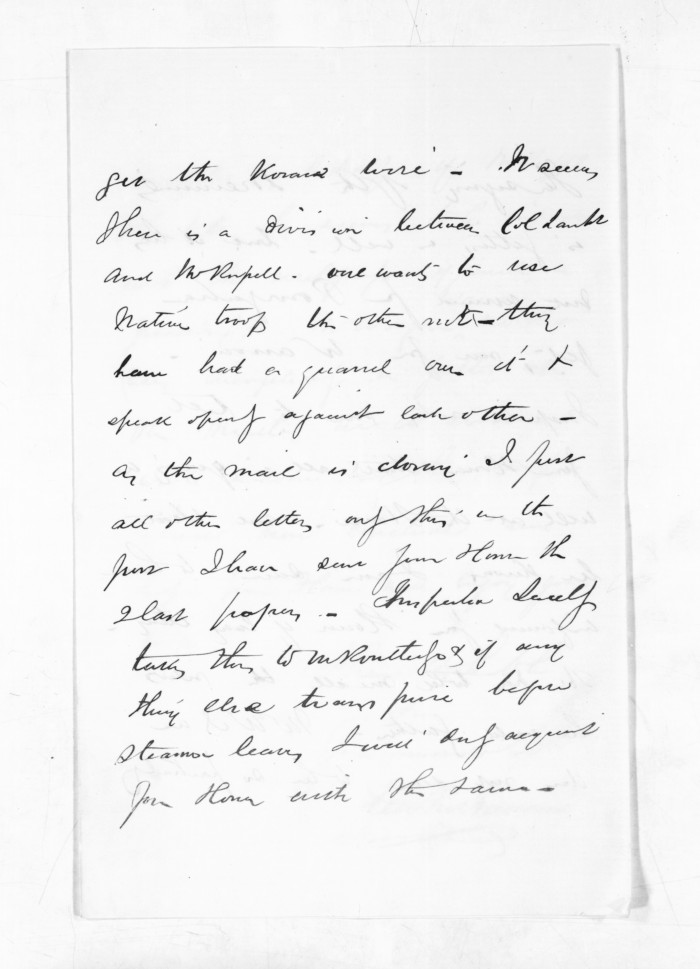 get the Korana here - It seems
there is a division between Col Lambt
and Mr Russell - one wants to use
Native troops the other not - they
have had a quarrel over it &
speak openly against each other -
As the mail is closing I put
all other letters only this in the
post I have sent your Honor the
2 last papers - Inspector Scully
takes this to Mr Routledge & if any
thing else transpire before
steamer leaves I will only acquaint
Your Honor with the same -